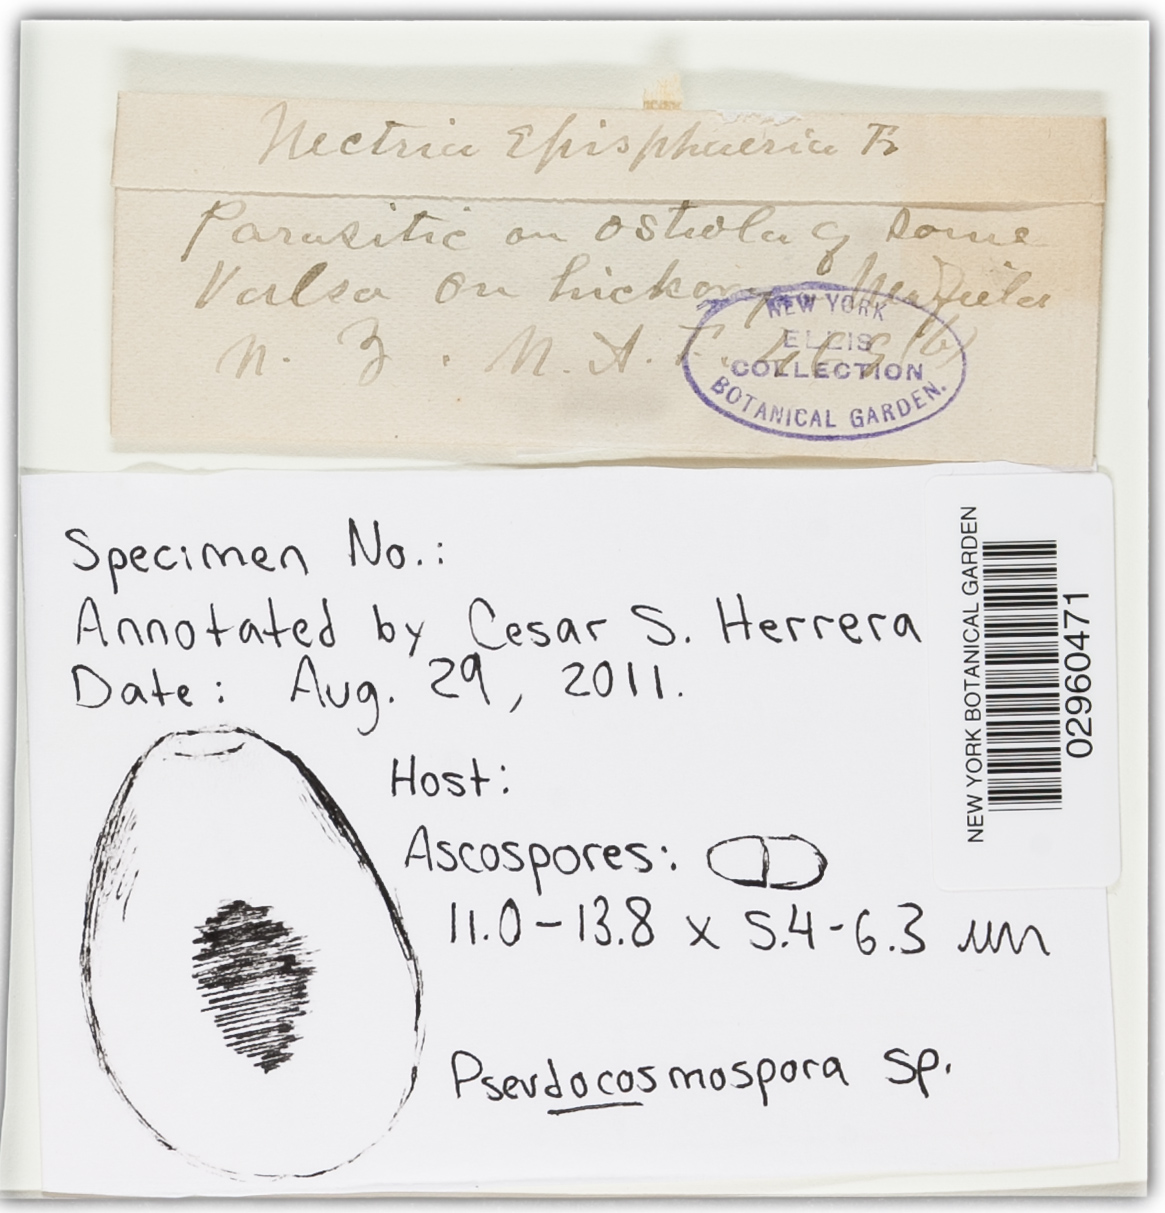 Nectria Episphaeria Fr
Parasitic on ostiola of some
Valsa on hickory Newfield
N. J. N. A. F.
NEW YORK
ELLIS
COLLECTION
BOTANICAL GARDEN.
Specimen No.:
Annotated by Cesar S. Herrera
Date: Aug. 29, 2011.
Host:
Ascospores:
11.0-13.8 x 5.4-6.3 um
Pseudocosmospora sp.
NEW YORK BOTANICAL GARDEN
02960471